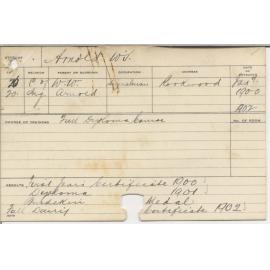 Arnold W.J.
AGE RELIGION PARENT OR GUARDIAN OCCUPATION ADDRESS DATE OF ENTRANCE
20 C of W.W. Rookwood Jan
20 Eng Arnold 1900
1902
COURSE OF TRAINING Full Diploma Course NO. OF ROOM
RESULTS First Years Certificate 1900
Diploma 1901
Burdekin Medal
Full Certificate 1902